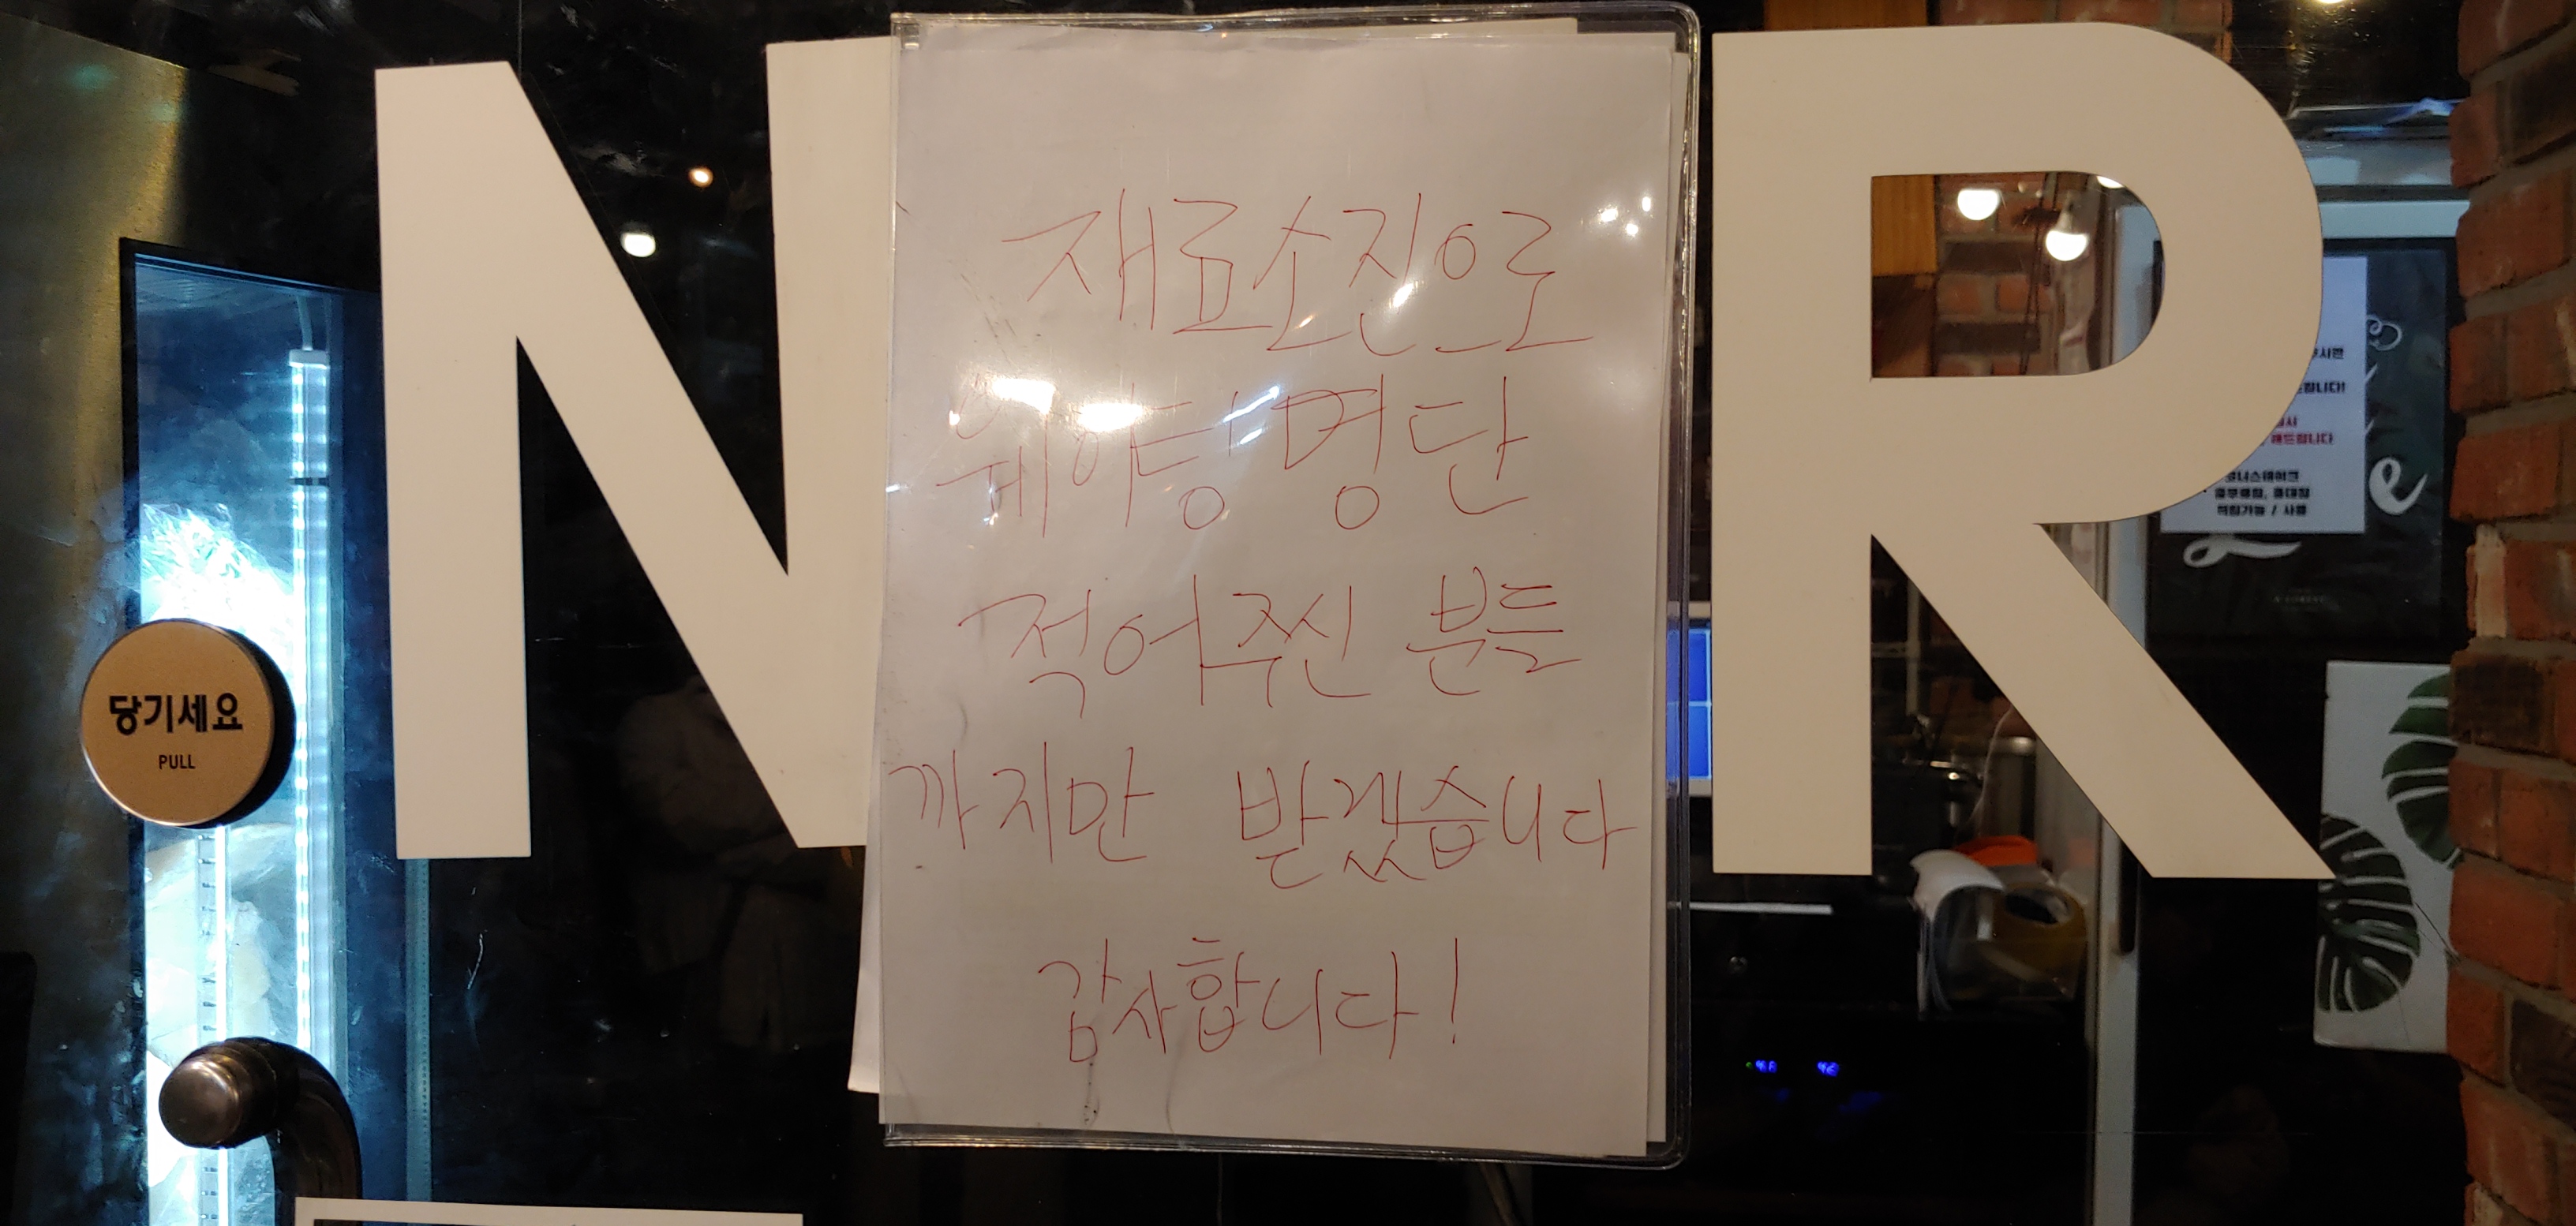 N R
재료소진으로
웨이팅 명단
적어주신 분들
까지만 받겠습니다
감사합니다!
당기세요
PULL
해드립니다
e